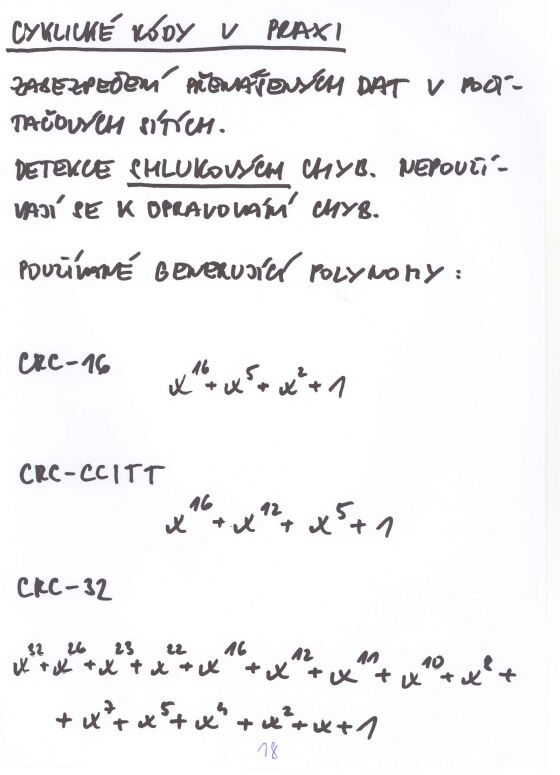 CYKLICKÉ KÓDY V PRAXI
ZABEZPEČENÍ PŘENÁŠENÝCH DAT V POČÍ-
TAČOVÝCH SÍTÍCH.
DETEKCE SHLUKOVÝCH CHYB. NEPOUŽÍ-
VAJÍ SE K OPRAVOVÁNÍ CHYB.
POUŽÍVANÉ GENERUJÍCÍ POLYNOMY :
CRC-16
x^16 + x^5 + x^2 + 1
CRC-CCITT
x^16 + x^12 + x^5 + 1
CRC-32
x^32 + x^26 + x^23 + x^22 + x^16 + x^12 + x^11 + x^10 + x^8 +
+ x^7 + x^5 + x^4 + x^2 + x + 1
18